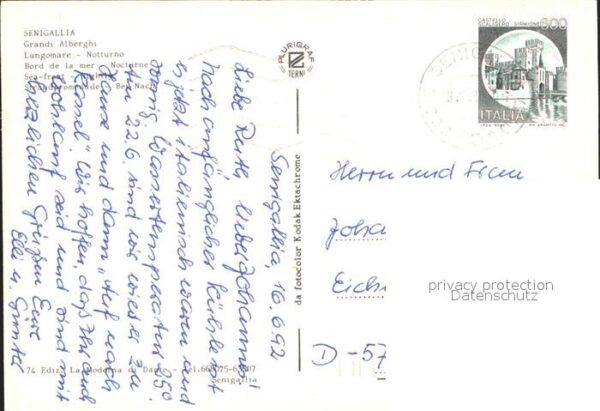 SENIGALLIA
Grandi Alberghi
Lungomare - Notturno
Bord de la mer - Nocturne
Sea-front - Night
Strandpromenade - Bei Nacht
PLURIGRAF
TERNI
CASTELLO
SCALIGERO SIRMIONE
600
ITALIA
SENIG
da fotocolor Kodak Ektachrome
Senigallia, 16.6.92
Liebe Ruth, lieber Johannes!
Nach anfänglicher Kühle ist
es jetzt italienisch warm und
sonnig. Wassertemperatur 25°.
Am 22.6. sind wir wieder zu
Hause und dann "Auf nach
Kassel". Wir hoffen, daß Ihr auch
wohlauf seid und sind mit
herzlichen Grüßen Eure
Elli u. Günter
Herrn und Frau
Joha
Eich
D-57
privacy protection
Datenschutz
74 Ediz. La Moderna di Dante - Tel.
Senigallia